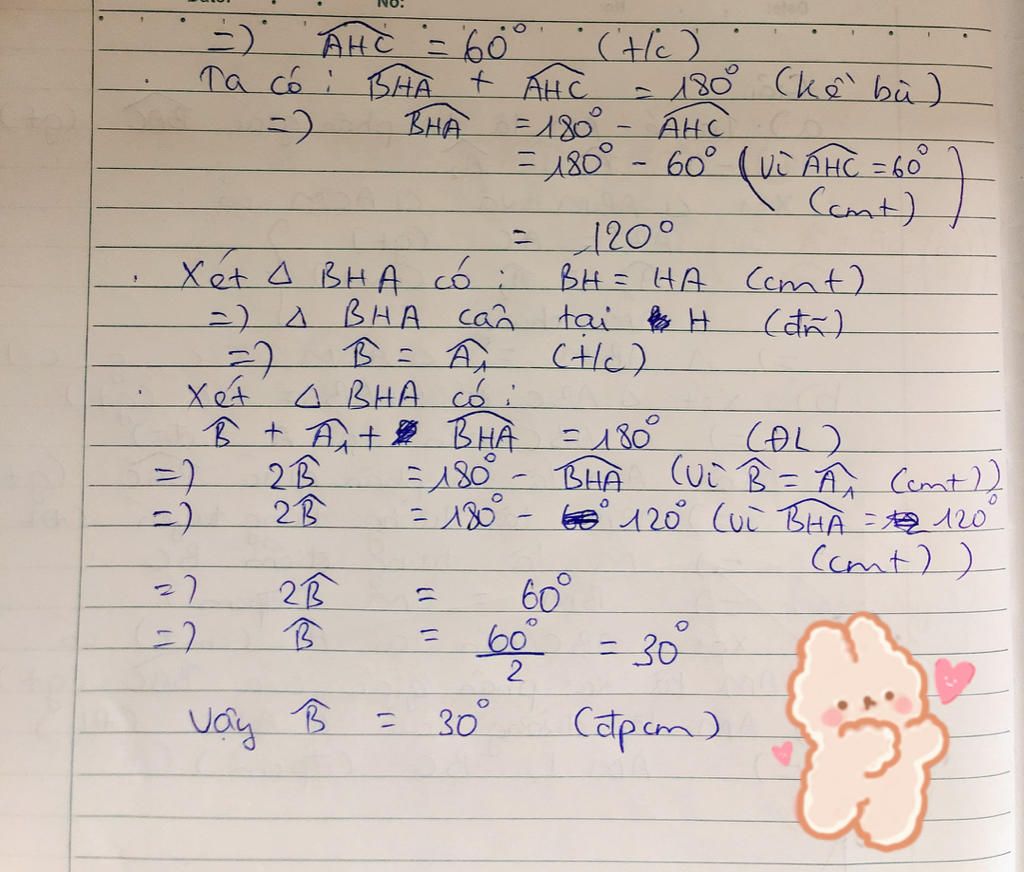 No:
=> \widehat{AHC} = 60° (t/c)
. Ta có : \widehat{BHA} + \widehat{AHC} = 180° (kề bù)
=> \widehat{BHA} = 180° - \widehat{AHC}
= 180° - 60° (vì \widehat{AHC} = 60°
(cmt))
= 120°
. Xét Δ BHA có : BH = HA (cmt)
=> Δ BHA cân tại H (đ/n)
=> \widehat{B} = \widehat{A₁} (t/c)
. Xét Δ BHA có :
\widehat{B} + \widehat{A₁} + \widehat{BHA} = 180° (ĐL)
=> 2\widehat{B} = 180° - \widehat{BHA} (vì \widehat{B} = \widehat{A₁} (cmt))
=> 2\widehat{B} = 180° - 120° (vì \widehat{BHA} = 120°
(cmt))
=> 2\widehat{B} = 60°
=> \widehat{B} = 60°/2 = 30°
Vậy \widehat{B} = 30° (đpcm)